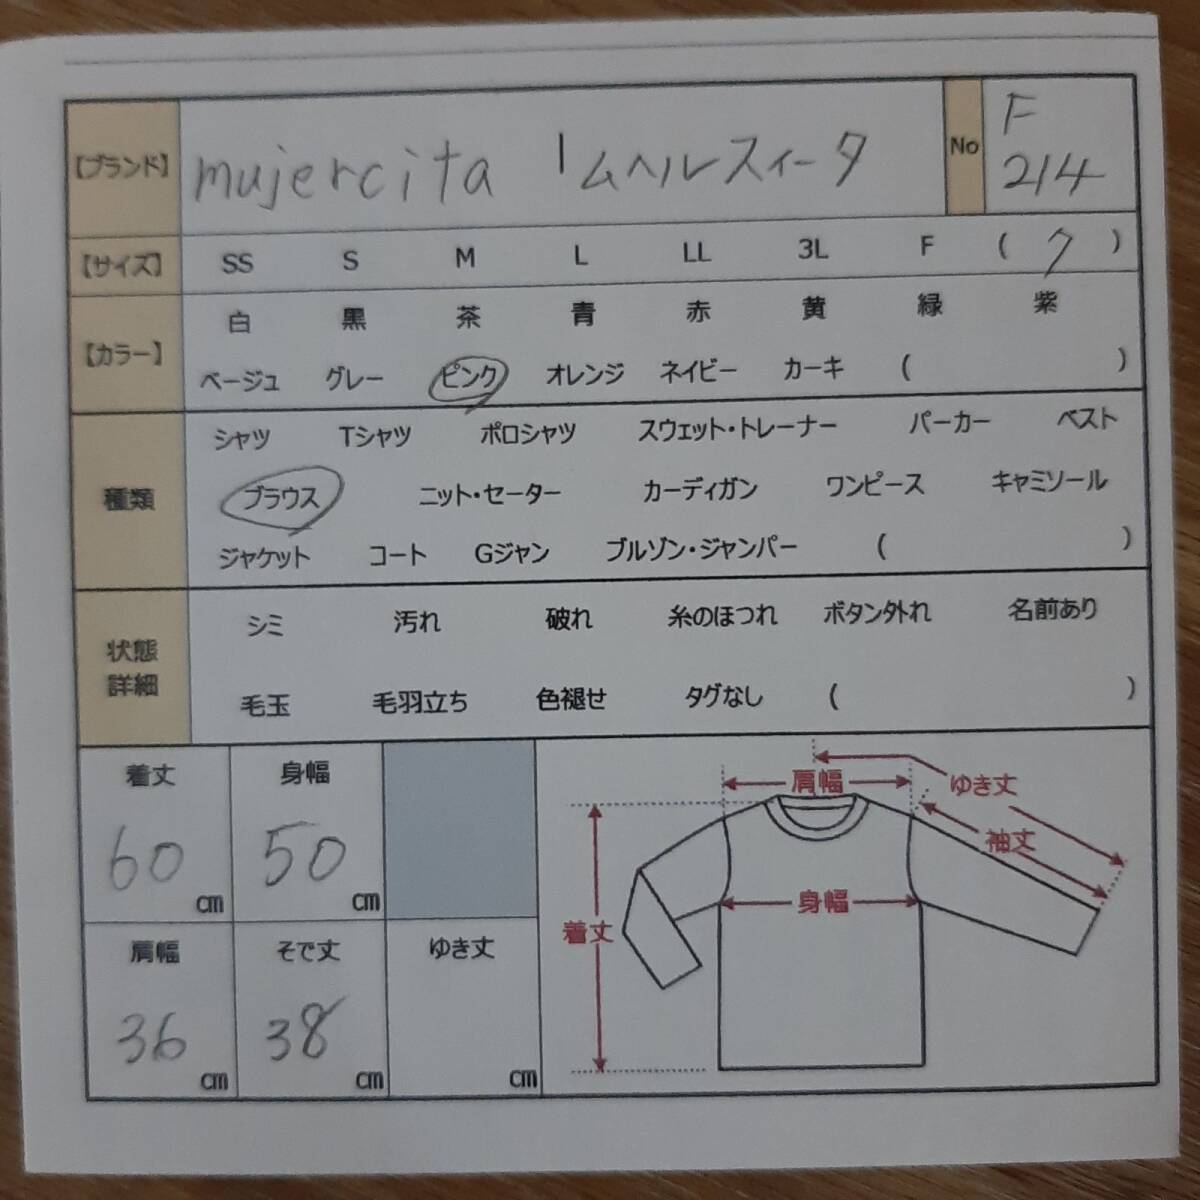 【ブランド】 mujercita ムヘルスィータ No F 214
【サイズ】 SS S M L LL 3L F ( 7 )
【カラー】 白 黒 茶 青 赤 黄 緑 紫
ベージュ グレー ピンク オレンジ ネイビー カーキ ( )
種類 シャツ Tシャツ ポロシャツ スウェット・トレーナー パーカー ベスト
ブラウス ニット・セーター カーディガン ワンピース キャミソール
ジャケット コート Gジャン ブルゾン・ジャンパー ( )
状態詳細 シミ 汚れ 破れ 糸のほつれ ボタン外れ 名前あり
毛玉 毛羽立ち 色褪せ タグなし ( )
着丈 身幅
60 cm 50 cm
肩幅 そで丈 ゆき丈
36 cm 38 cm cm
肩幅 ゆき丈
袖丈
身幅
着丈